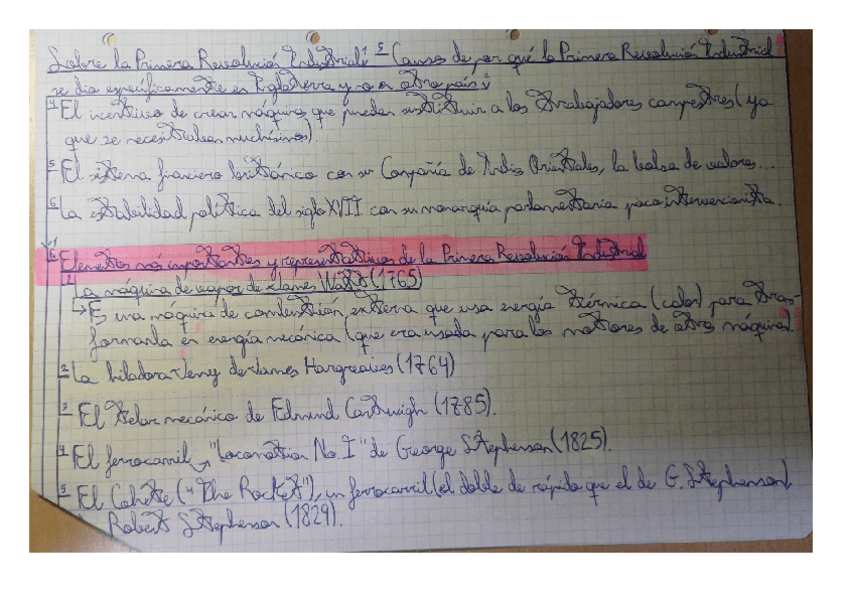 Sobre la Primera Revolución Industrial: 5 Causas de por qué la Primera Revolución Industrial
se dio específicamente en Inglaterra y no en otro país:
4 El incentivo de crear máquinas que puedan sustituir a los trabajadores campestres (ya
que se necesitaban muchísimos).
5 El sistema financiero británico con su Compañía de Indias Orientales, la bolsa de valores...
6 La estabilidad política del siglo XVII con su monarquía parlamentaria poco intervencionista.
6 Elementos más importantes y representativos de la Primera Revolución Industrial
1 La máquina de vapor de James Watt (1765)
↳ Es una máquina de combustión externa que usa energía térmica (calor) para trans-
formarla en energía mecánica (que era usada para los motores de otras máquinas).
2 La hiladora Jenny de James Hargreaves (1764)
3 El telar mecánico de Edmund Cartwrigh (1785).
4 El ferrocarril → "Locomotion No. I" de George Stephenson (1825).
5 El Cohete ("The Rocket"), un ferrocarril (el doble de rápido que el de G. Stephenson)
Robert Stephenson (1829).